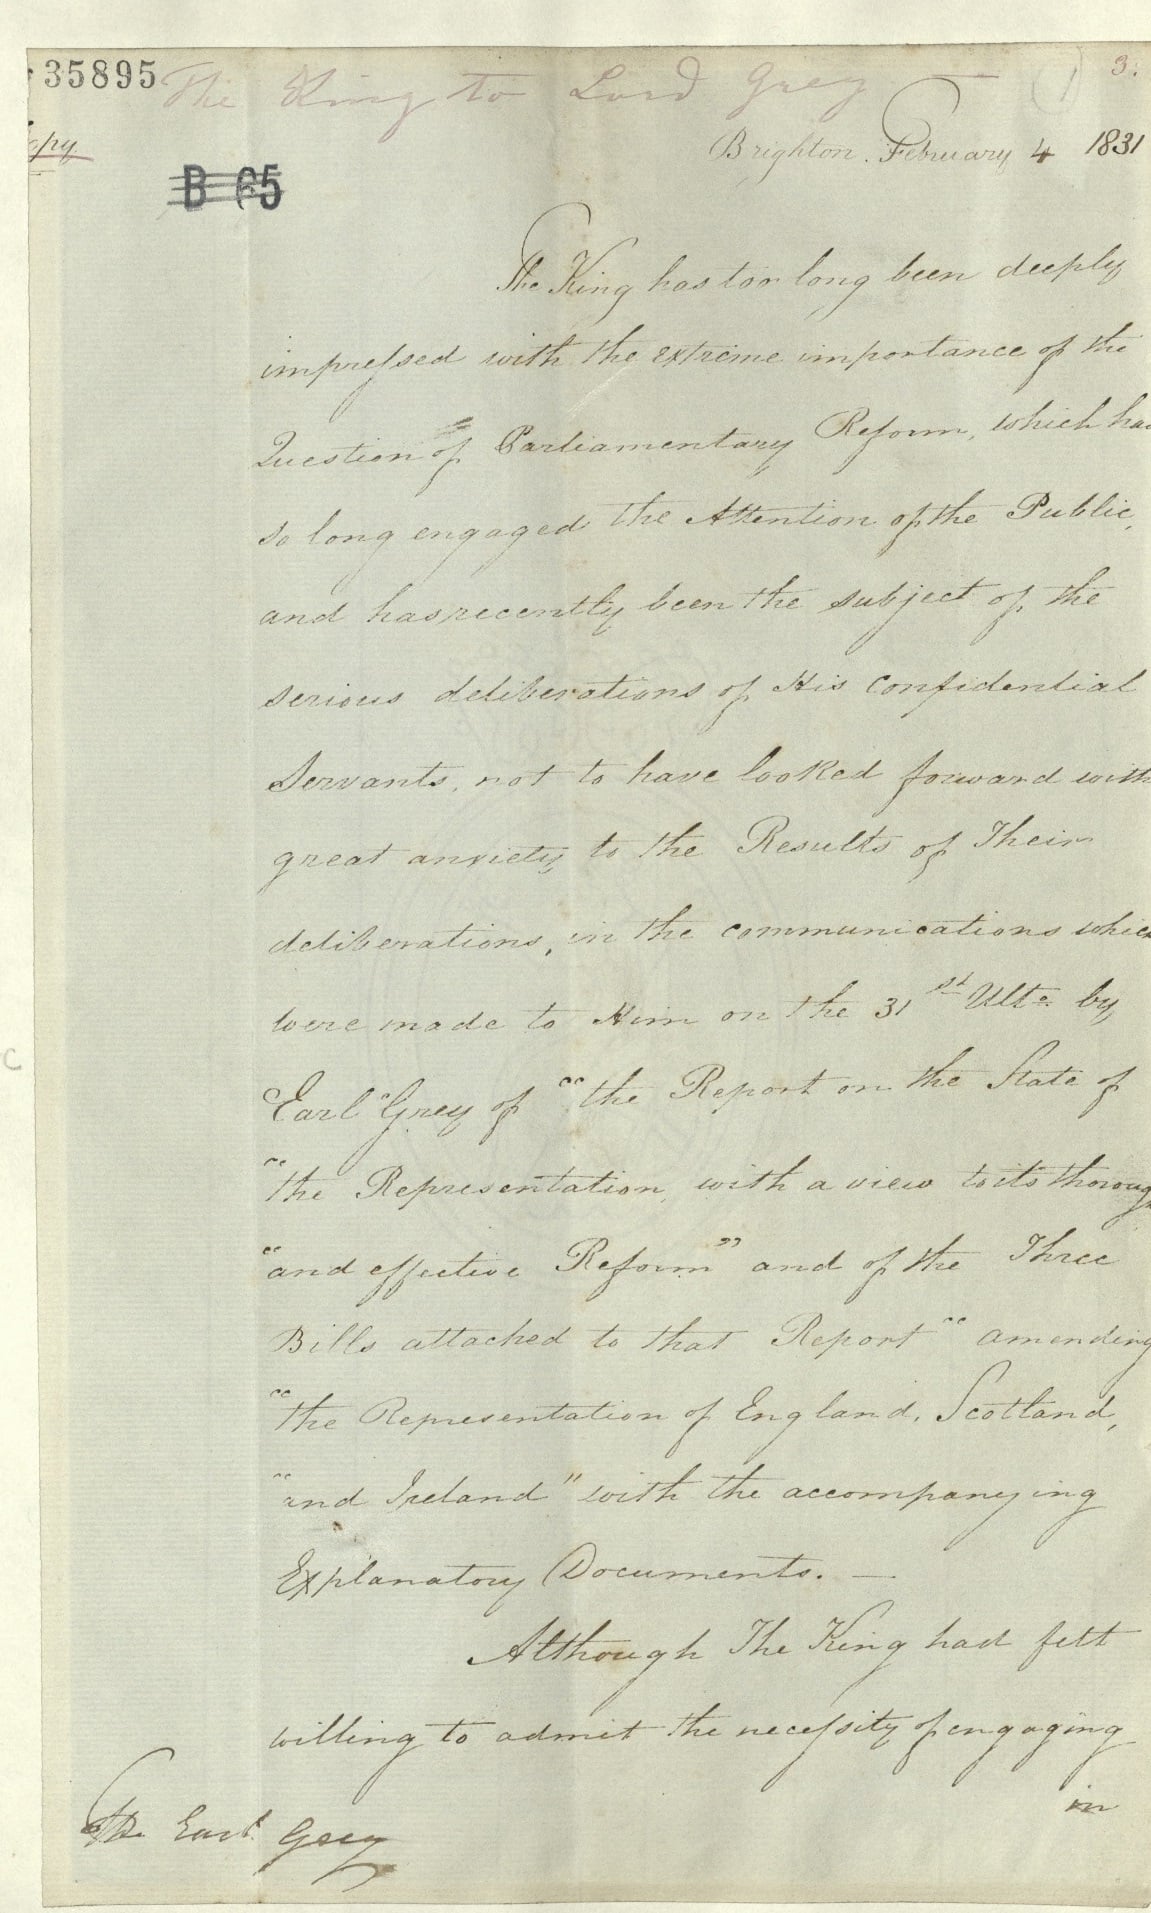 35895
The King to Lord Grey
1
3.
opy
Brighton. February 4 1831
B 65
The King has too long been deeply
impressed with the extreme importance of the
Question of Parliamentary Reform, which ha
so long engaged the Attention of the Public,
and has recently been the subject of the
serious deliberations of His Confidential
Servants, not to have looked forward with
great anxiety to the Results of Their
deliberations, in the communications which
were made to Him on the 31st Ulto. by
Earl Grey of "the Report on the State of
"the Representation, with a view to its thoroug
"and effective Reform" and of the Three
Bills attached to that Report "amending
"the Representation of England, Scotland,
"and Ireland" with the accompanying
Explanatory Documents. —
Although The King had felt
willing to admit the necessity of engaging
in
The Earl Grey
C